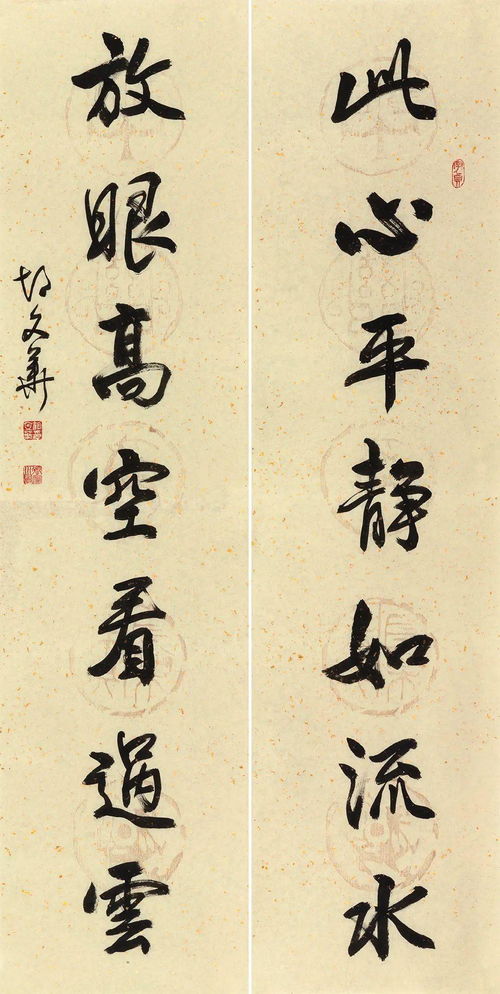 此心平静如流水
放眼高空看過雲
胡文華